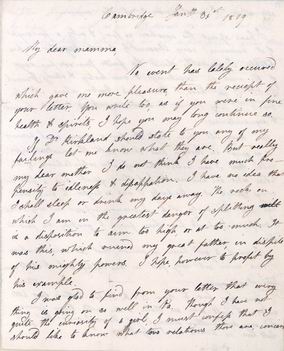 Cambridge Jany 31st 1819
My dear mamma
No event has lately occured
which gave me more pleasure than the receipt of
your letter. You write too, as if you were in fine
health & spirits, I hope you may long continue so.
If Dr Kirkland should state to you any of my
failings let me know what they are. But really
my dear mother I do not think I have much pro-
pensity to idleness & dissipation. I have no idea that
I shall sleep or drink my days away. The rock on
which I am in the greatest danger of splitting
is a disposition to aim too high or at too much. It
was this, which ruined my great father, in dispite
of his mighty powers. I hope, however to profit by
his example.
I was glad to find from your letter that every
thing is going on so well in Pa. Though I have not
quite the curiosity of a girl, I must confess that I
should like to know what love relations there are, concern